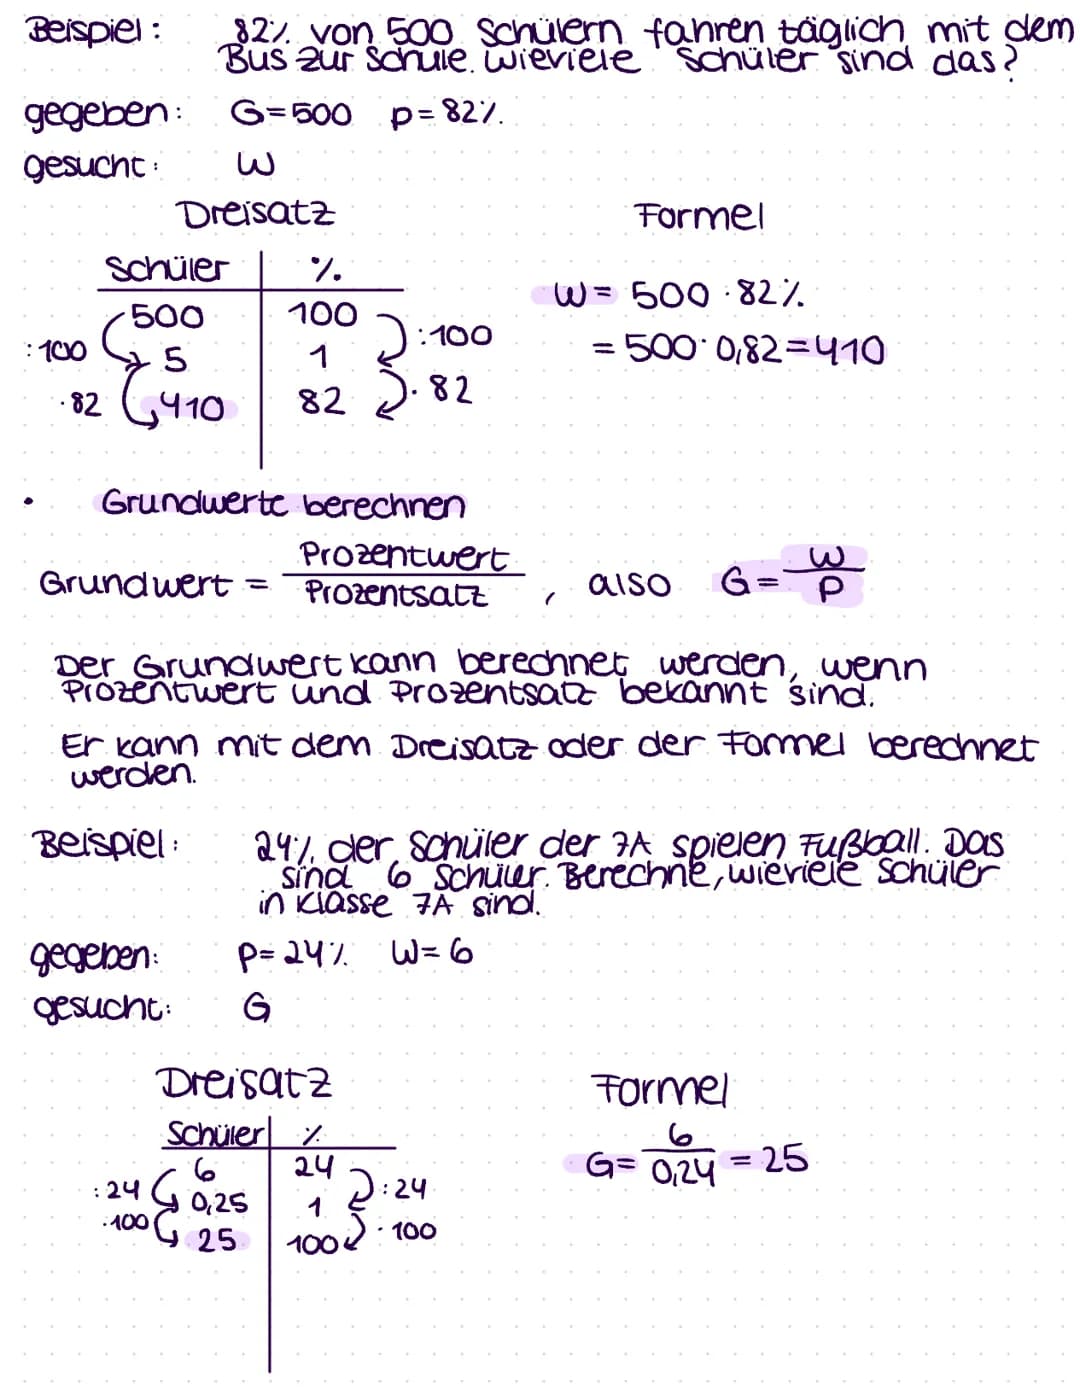 Beispiel: 82% von 500 Schülern fahren täglich mit dem
Bus zur Schule. Wieviele Schüler sind das?
gegeben: G=500 p=82%.
gesucht: W
Dreisatz Formel
Schüler %
500 100
:100 :100
5 1
·82 ·82
410 82
W= 500 · 82%
= 500 · 0,82=410
• Grundwerte berechnen
Grundwert = Prozentwert / Prozentsatz , also G= W / P
Der Grundwert kann berechnet werden, wenn
Prozentwert und Prozentsatz bekannt sind.
Er kann mit dem Dreisatz oder der Formel berechnet
werden.
Beispiel: 24% der Schüler der 7A spielen Fußball. Das
sind 6 Schüler. Berechne, wieviele Schüler
in Klasse 7A sind.
gegeben: p=24% W=6
gesucht: G
Dreisatz Formel
Schüler %
6 24
:24 :24
0,25 1
·100 ·100
25 100
G= 6 / 0,24 = 25